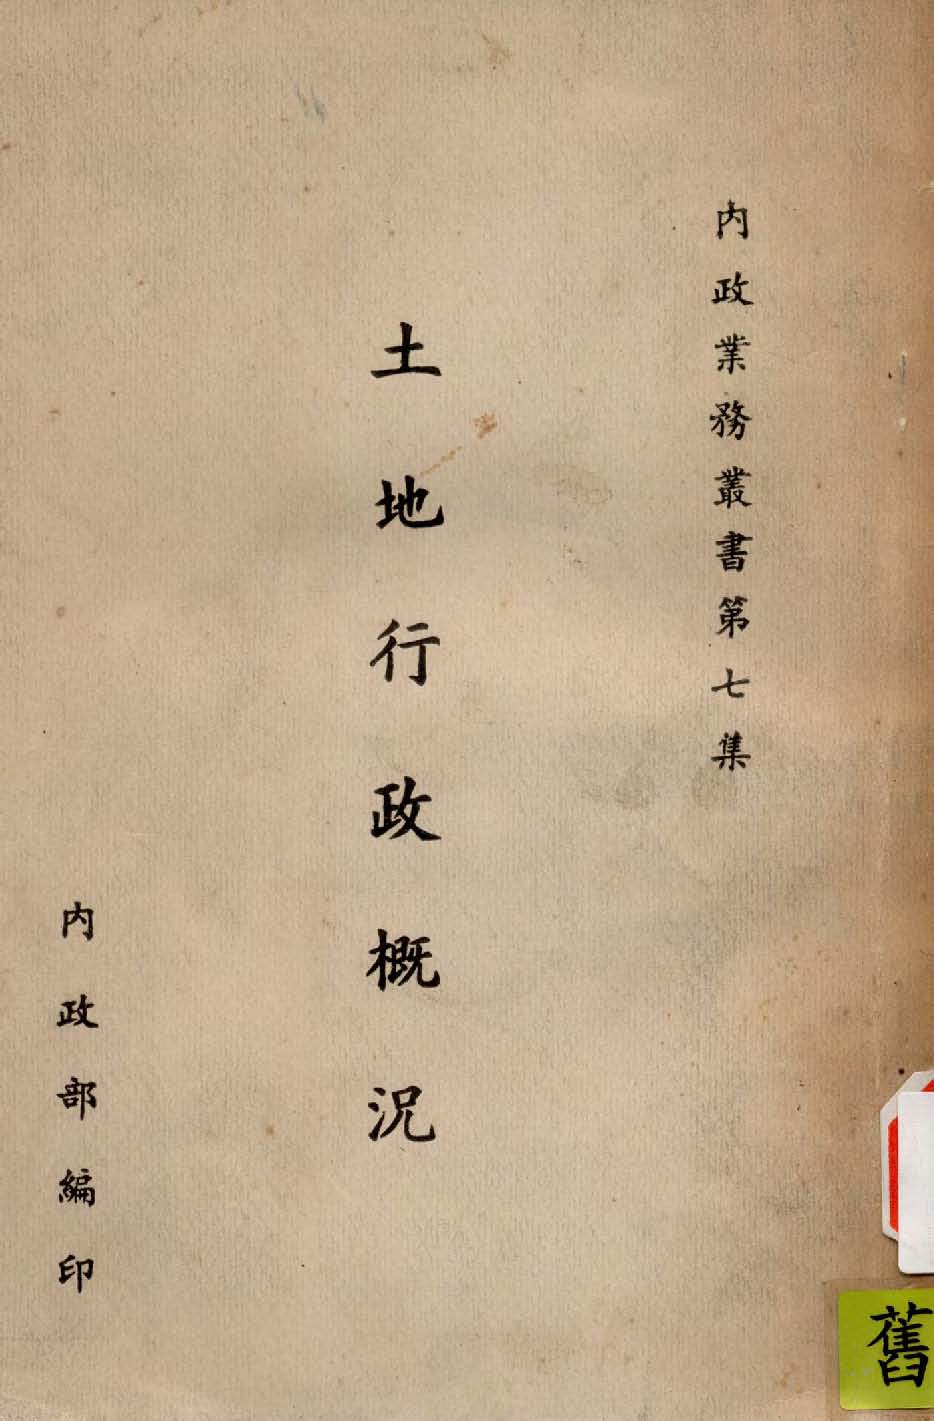 内政業務叢書第七集
土地行政概況
内政部編印
舊